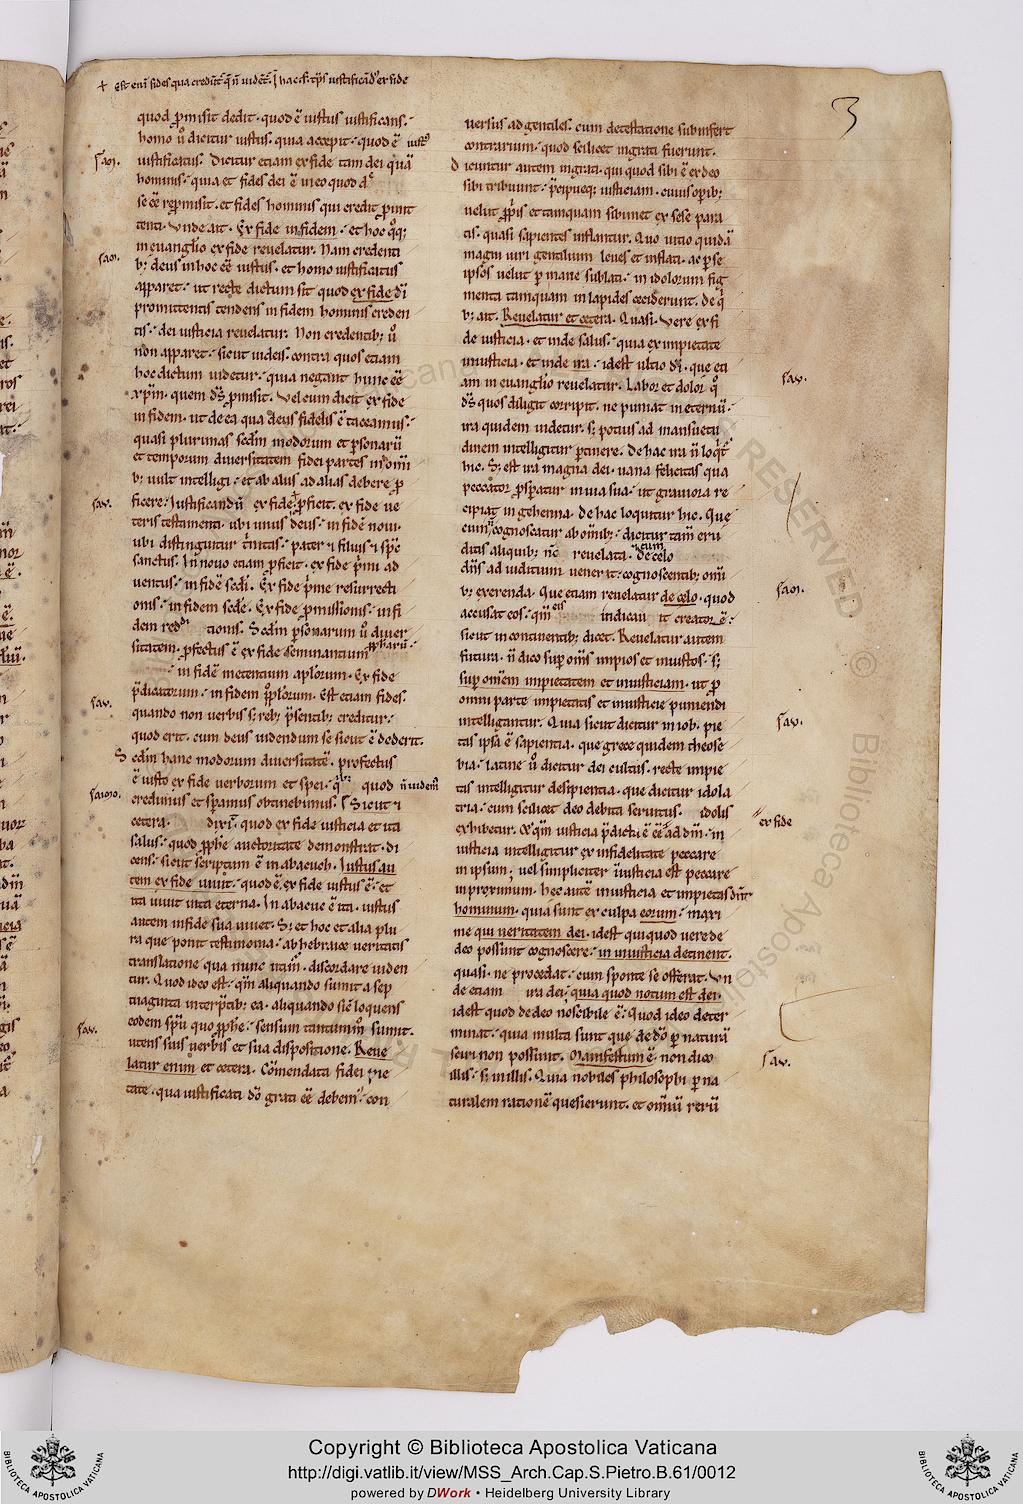 + Est eni fides qua credūt' q̄ n̄ uidēt'. J hac. s. ip̄s iustificād' ex fide
3
quod p̄misit dedit. quod ē iustus iustificans.
homo ū dicitur iustus. quia accepit. quod ē iust9
iustificatus. Dicitur etiam ex fide tam dei quā
hominis. quia et fides dei ē in eo quod dc̄
se eē rep̄misit. et fides hominis qui credit p̄mit
tenti. Unde ait. Ex fide in fidem. et hoc q̄q;
in euanglio ex fide reuelatur. Nam credenti
b; deus in hoc eē iustus. et homo iustificatus
apparet. ut recte dictum sit quod ex fide dī
promittentis tendens in fidem hominis creden
tis. dei iusticia reuelatur. Non credentib; ū
non apparet. sicut iudeis. contra quos etiam
hoc dictum uidetur. quia negant hunc eē
xp̄m. quem ds̄ p̄misit. Vel cum dicit ex fide
in fidem. ut de ea qua deus fidelis ē taceamus.
quasi plurimas scdm modorum et p̄sonarū
et temporum diuersitatem fidei partes in om̄i
b; uult intelligi. et ab aliis ad alias debere p̄
ficere. Iustificandū ex fide p̄ficit. ex fide ue
teris testamenti. ubi unus deus. in fidē noui.
ubi distinguitur t̄nitas. pater et filius et sp̄c
sanctus. In nouo etiam p̄ficit. ex fide p̄mi ad
uentus. in fidē scdi. Ex fide p̄me resurrecti
onis. in fidem scdē. Ex fide p̄missionis. in fi
dem reddi tionis. Scdm p̄sonarum ū diuer
sitatem. p̄fectus ē ex fide seminantium p̄phaꝝ.
in fidē metentium aplorum. Ex fide
p̄dicatorum. in fidem p̄plorum. Est etiam fides.
quando non uerbis s; reb; p̄sentib; creditur.
quod erit. cum deus uidendum se sicut ē dederit.
Scdm hanc modorum diuersitatē. profectus
ē iusto ex fide uerborum et spei. quod n̄ uidem9
credimus et sp̄amus obtinebimus. Sicut et
cetera. dixi. quod ex fide iusticia et ita
salus. quod p̄phe auctoritate demonstrat. di
cens. sicut scriptum ē in abacuch. Iustus au
tem ex fide uiuit. quod ē. ex fide iustus ē. et
ita uiuit uita eterna. In abacuc ē ita. iustus
autem in fide sua uiuet. S; et hoc et alia plu
ra que ponit testimonia. ab hebraice ueritatis
translatione qua nunc utim̄. discordare uiden
tur. Quod ideo est. qm̄ aliquando sumit a sep
tuaginta interp̄tib; ea. aliquando sic loquens
eodem sp̄u quo p̄phe. sensum tantum sumit.
utens suis uerbis et sua dispositione. Reue
latur enim et cetera. Cōmendata fidei pie
tate. qua iustificati dō grati eē debem̄. con
uersus ad gentiles. cum detestatione subinfert
contrarium. quod scilicet ingrati fuerunt.
Dicuntur autem ingrati. qui quod sibi ē ex deo
sibi tribuunt. p̄cipueq; iusticiam. cuius opib;
uelut p̄p̄iis et tamquam sibimet ex sese para
tis. quasi sapientes inflantur. Quo uitio quidā
magni uiri gentilium leues et inflati. ac p̄ se
ipsos uelut p̄ inane sublati. in idolorum fig
menta tamquam in lapides ceciderunt. de q̄
b; ait. Reuelatur et cetera. Quasi. Vere ex fi
de iusticia. et inde salus. quia ex impietate
iniusticia. et inde ira. idest ultio dī. que eti
am in euanglio reuelatur. Labor et dolor q̄
ds̄ quos diligit corripit. ne puniat in eternū.
ira quidem uidetur. s; potius ad mansuetu
dinem intelligitur p̄tinere. De hac ira n̄ loqt̄
hic. S; est ira magna dei. uana felicitas qua
peccator p̄sp̄atur in uia sua. ut grauiora re
cipiat in gehenna. de hac loquitur hic. Que
cum n̄ cognoscatur ab omib;. dicitur tam̄ eru
ditis aliquib; nc̄ reuelata. cum de celo
dn̄s ad iuditium uenerit. cognoscentib; om̄i
b; exerenda. Que etiam reuelatur de celo. quod
accusat eos. qm̄ eis indicauit creatorē.
sicut in continentib; dicet. Reuelatur autem
futura. n̄ dico sup̄ om̄s impios et iniustos. s;
sup̄ omem impietatem et iniusticiam. ut p̄
omni parte impietatis et iniusticie puniendi
intelligantur. Quia sicut dicitur in iob. pie
tas ipsa ē sapientia. que grece quidem theose
bia. latine ū dicitur dei cultus. recte impie
tas intelligitur desipientia. que dicitur idola
tria. cum scilicet deo debita seruitus. idolis
exhibetur. Et qm̄ iusticia p̄dicti ē eē ad dm̄. in
iusticia intelligitur ex infidelitate peccare
in ipsum; uel simpliciter iiusticia est peccare
in proximum. hec autē iniusticia et impietas dn̄r
hominum. quia sunt ex culpa eorum. maxi
me qui ueritatem dei. idest qui quod uere de
deo possunt cognoscere. in iniusticia detinent.
quasi. ne procedat. cum sponte se offerat. Un
de etiam ira dei; quia quod notum est dei.
idest quod de deo noscibile ē. Quod ideo deter
minat. quia multa sunt que de dō p̄ naturā
sciri non possunt. Manifestum ē. non dico
illis. s; in illis. Quia nobiles philosophi p̄ na
turalem rationē quesierunt. et omniū rerū
ex fide
Copyright © Biblioteca Apostolica Vaticana
http://digi.vatlib.it/view/MSS_Arch.Cap.S.Pietro.B.61/0012
powered by DWork • Heidelberg University Library